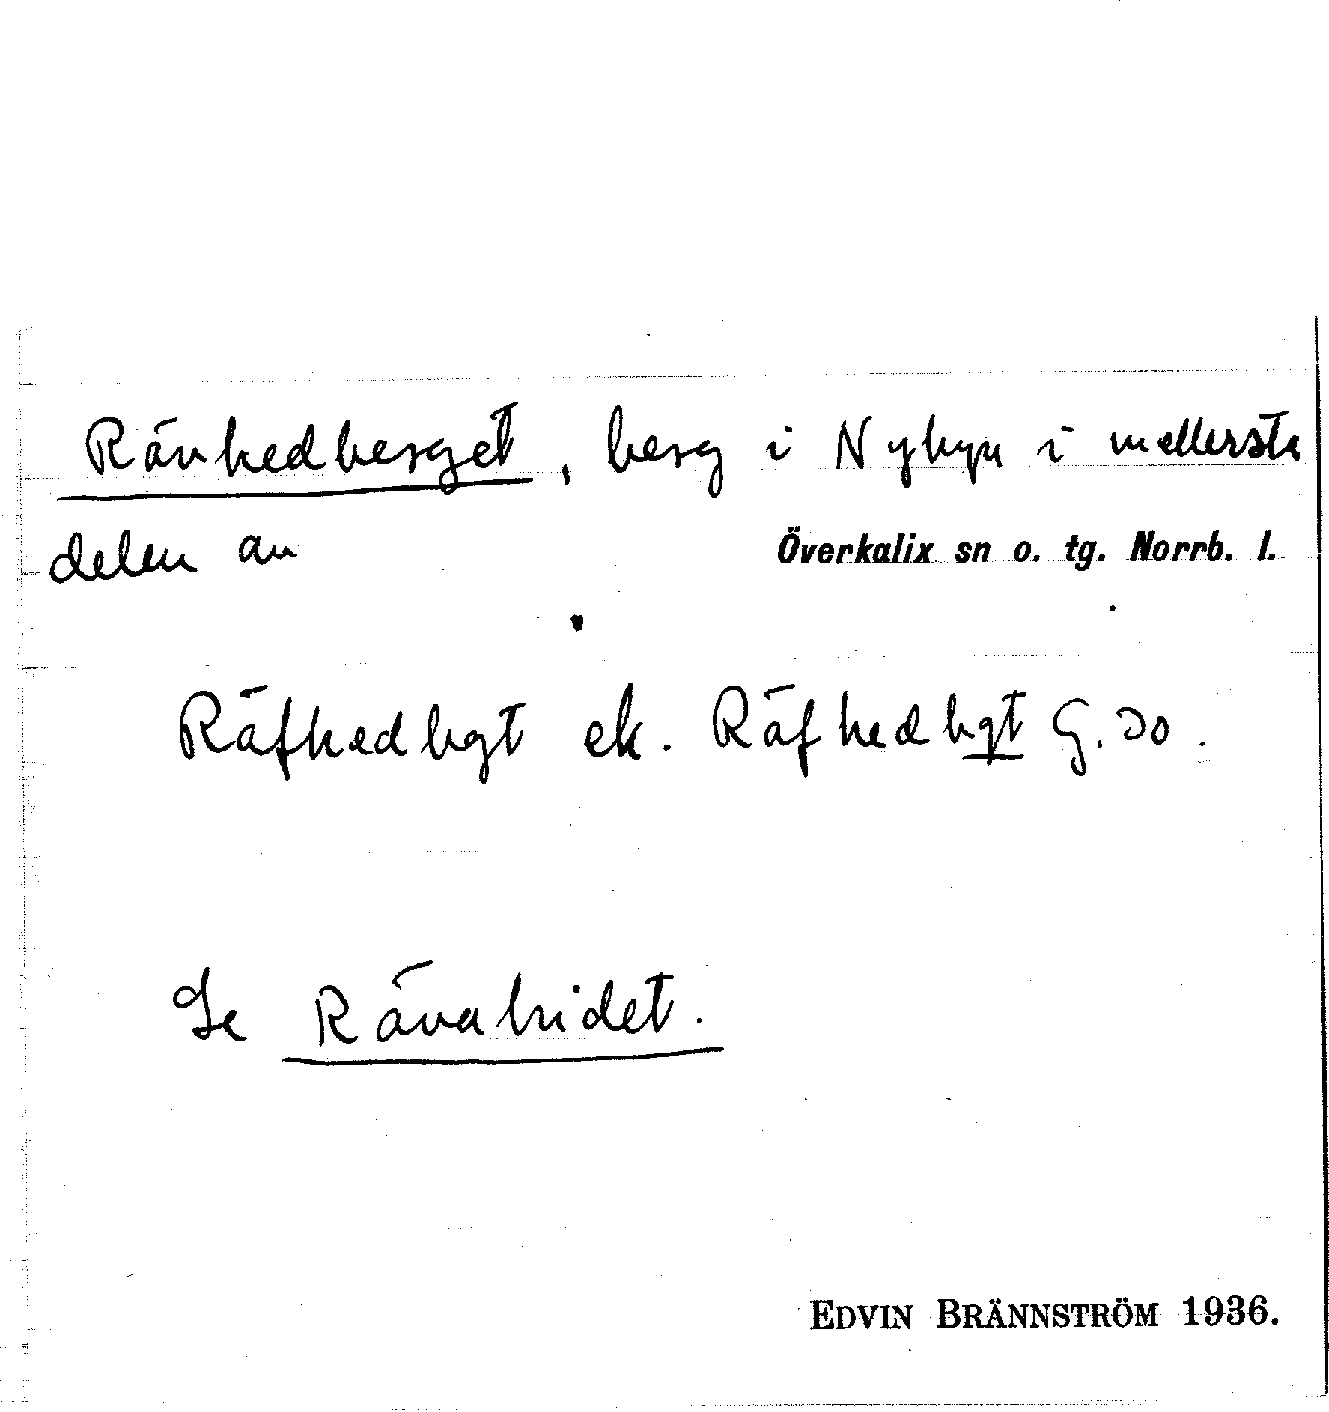 Rävhedberget, berg i Nybyn i mellersta
delen av Överkalix sn o. tg. Norrb. l.
Räfhedbgt ek. Räfhedbgt G. 30.
Se Rävabridet.
EDVIN BRÄNNSTRÖM 1936.